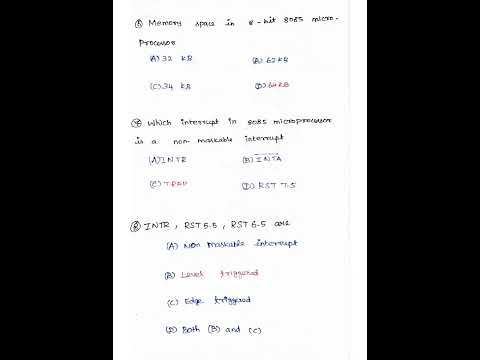 ⑥ Memory space in 8-bit 8085 micro-
Processor
(A) 32 KB (B) 62KB
(C) 34 KB (D) 64KB
⑦ Which interrupt in 8085 microprocessor
is a non-maskable interrupt
(A) INTR (B) I̅N̅T̅A̅
(C) TRAP (D) RST 7.5
⑧ INTR, RST 5.5, RST 6.5 are
(A) Non Maskable interrupt
(B) Level triggered
(C) Edge triggered
(D) Both (B) and (C)